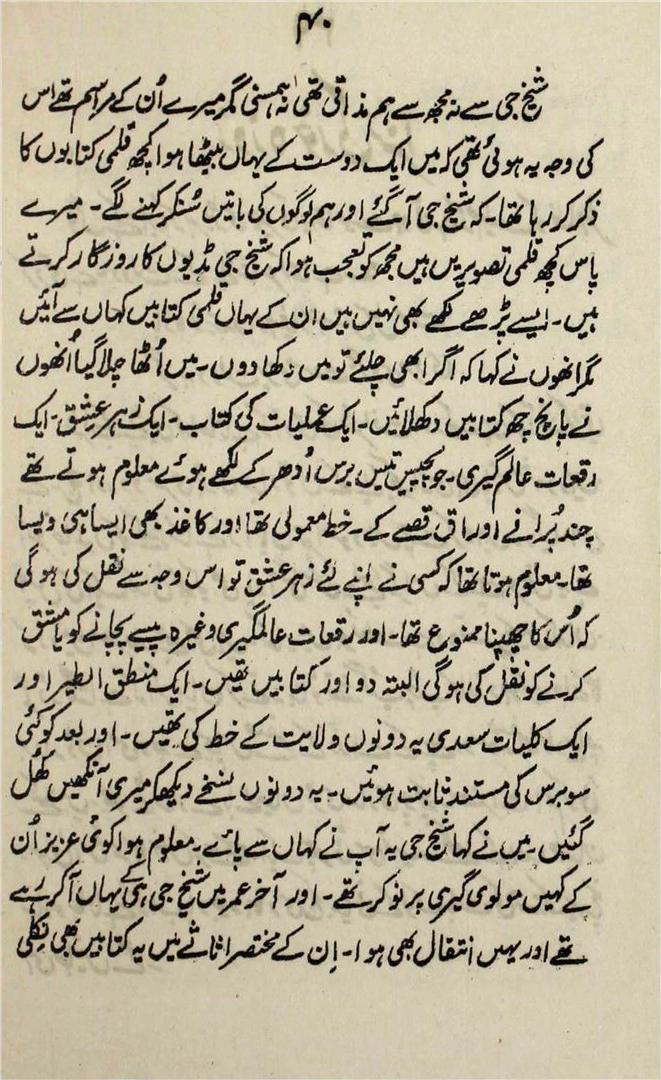 ۴۰
شیخ جی سے نہ مجھ سے ہم مذاقی تھی نہ ہمسنی مگر میرے اُن کے مراسم تھے اس
کی وجہ یہ ہوئی تھی کہ میں ایک دوست کے یہاں بیٹھا ہوا کچھ قلمی کتابوں کا
ذکر کر رہا تھا۔ کہ شیخ جی آ گئے اور ہم لوگوں کی باتیں سُنکر کہنے لگے۔ میرے
پاس کچھ قلمی تصویریں ہیں مجھ کو تعجب ہوا کہ شیخ جی ہڈیوں کا روزگار کرتے
ہیں۔ ایسے پڑھے لکھے بھی نہیں ہیں ان کے یہاں قلمی کتابیں کہاں سے آئیں
مگر انھوں نے کہا کہ اگر ابھی چلئے تو میں دکھا دوں۔ میں اُٹھا چلا گیا اُنھوں
نے پانچ چھ کتابیں دکھلائیں۔ ایک عملیات کی کتاب۔ ایک زہر عشق۔ ایک
رقعات عالم گیری۔ جو پچیس تیس برس اُدھر کے لکھے ہوئے معلوم ہوتے تھے
چند پُرانے اوراق قصے کے۔ خط معمولی تھا اور کاغذ بھی ایسا ہی ویسا
تھا۔ معلوم ہوتا تھا کہ کسی نے اپنے لئے زہر عشق تو اس وجہ سے نقل کی ہوگی
کہ اُس کا چھپنا ممنوع تھا۔ اور رقعات عالمگیری وغیرہ پیسے بچانے کو یا مشق
کرنے کو نقل کی ہوگی البتہ دو اور کتابیں تھیں۔ ایک منطق الطیر اور
ایک کلیات سعدی یہ دونوں ولایت کے خط کی تھیں۔ اور بعد کو کئی
سو برس کی مستند ثابت ہوئیں۔ یہ دونوں نسخے دیکھکر میری آنکھیں کھُل
گئیں۔ میں نے کہا شیخ جی یہ آپ نے کہاں سے پائے۔ معلوم ہوا کوئی عزیز اُن
کے کہیں مولوی گیری پر نوکر تھے۔ اور آخر عمر میں شیخ جی ہی کے یہاں آکر رہے
تھے اور یہیں انتقال بھی ہوا۔ اِن کے مختصر اثاثے میں یہ کتابیں بھی نکلی